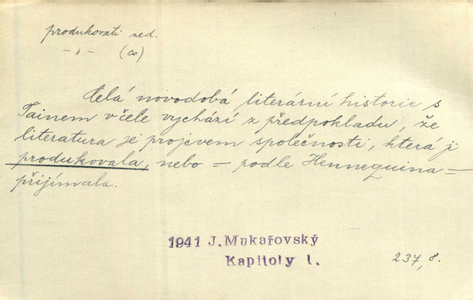 produkovati ned.
-"- (co)
Celá novodobá literární historie s
Tainem v čele vychází z předpokladu, že
literatura je projevem společnosti, která ji
produkovala, nebo – podle Hennequina –
přijímala.
1941 J. Mukařovský
Kapitoly 1.
237, 8.